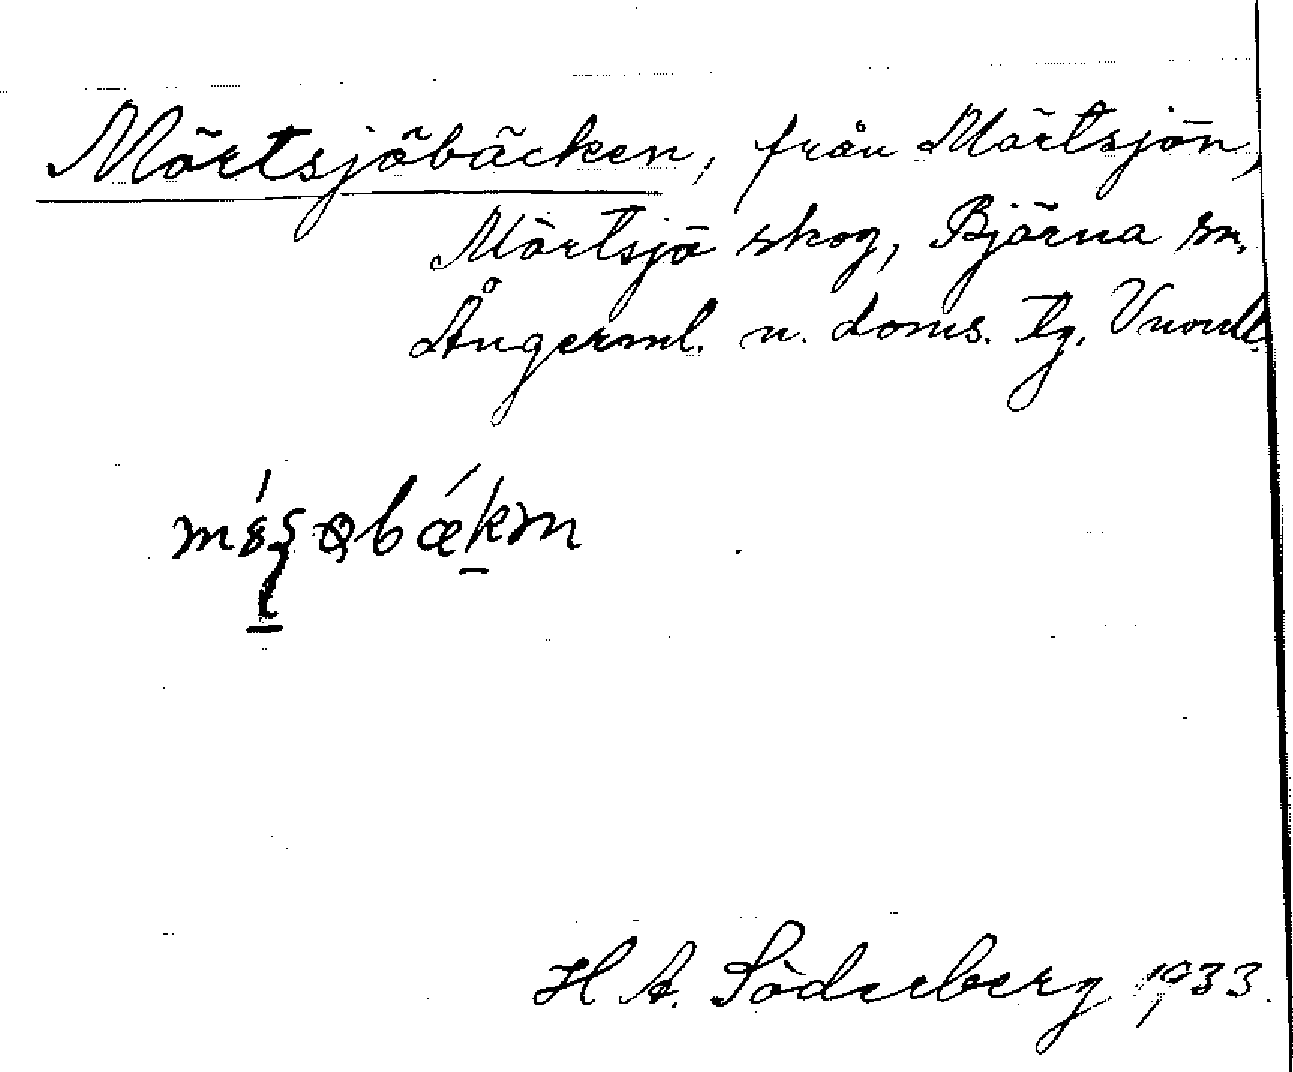 Mörtsjöbäcken, från Mörtsjön,
Mörtsjö skog, Björna sn,
Ångerml. n. doms. tg,
H A. Söderberg 1933.